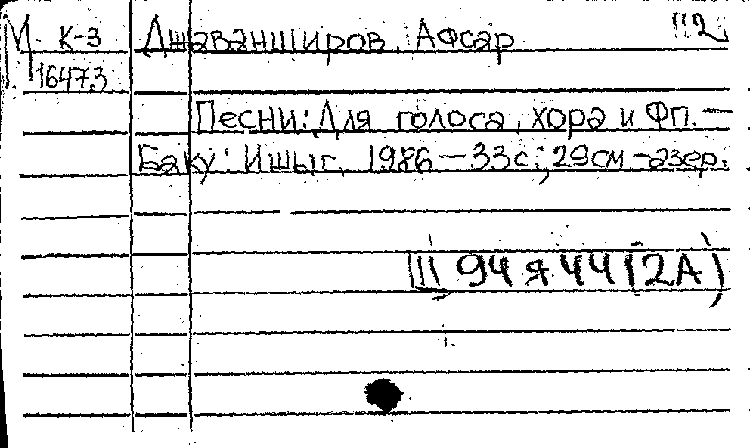 М К-3 Джаванширов, Афсар Щ2
16473
Песни: Для голоса, хора и Фп. —
Баку: Ишыг, 1986 — 33с.; 29см — азер.
Щ 94 я 44 (2А)